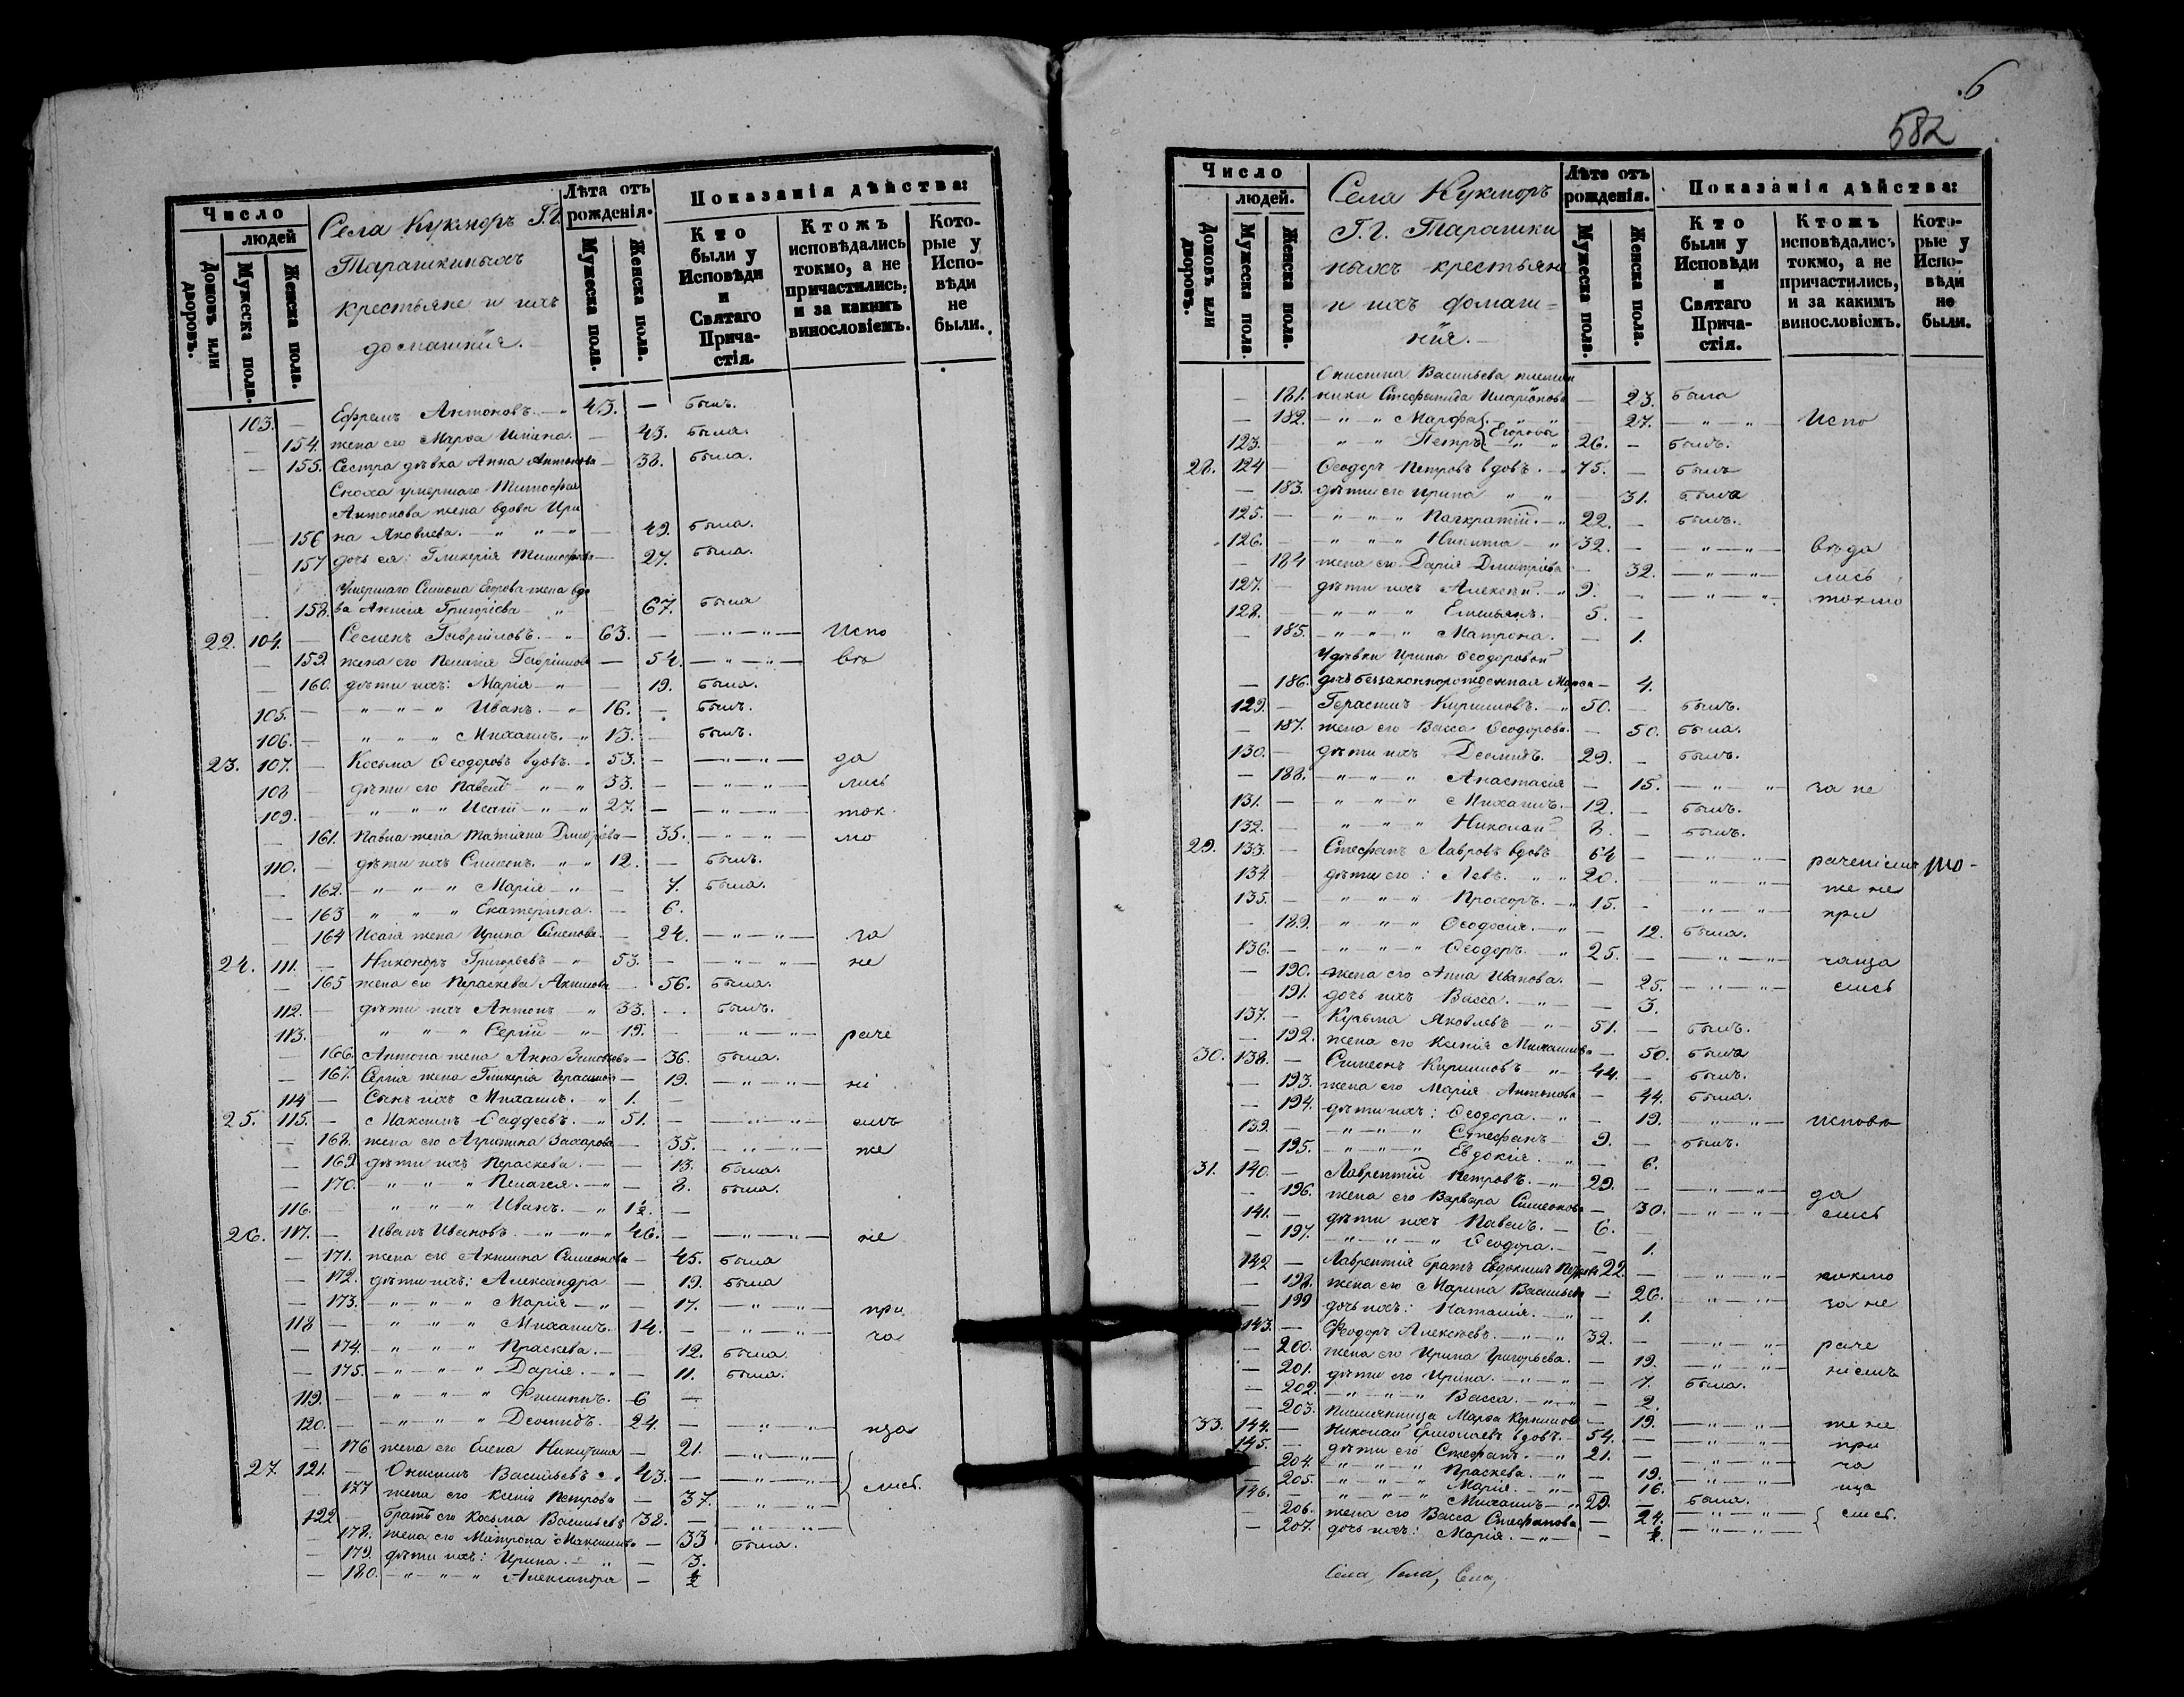 Число
людей
Домовъ или дворовъ.
Мужеска пола.
Женска пола.
Села Кукморъ Г.Г.
Тарашкиныхъ
крестьяне и ихъ
домашнiя.
Лѣта отъ рожденія.
Мужеска пола.
Женска пола.
Показанія дѣйства:
Кто были у Исповѣди и Святаго Прича-стія.
Ктожъ исповѣдались токмо, а не причастились, и за какимъ винословіемъ.
Кото-рые у Испо-вѣди не были.
103. — Ефремъ Антоновъ. — " 43. — былъ.
— 154. жена его Марѳа — 43. была.
— 155. Сестра дѣвка Анна Антонова — 38. была.
Сноха умершаго Тимофея
Антонова жена вдова Ири
— 156 на Яковлева. — " — " — 49. была.
— 157 дочь ея: Гликерія Тимофеева — 27. была.
Умершаго Симона Егорова жена вдо
— 158. ва Григоріева — " — 67. была
22. 104. — Семенъ Гавриловъ. — " 63. — — " — " — Испо
— 159. жена его Пелагія Гавріилова — 54. — " — " — вѣ
— 160. дѣти ихъ: Марія — " — — 19. была.
105. — — " — " — " Иванъ. — " 16. — былъ.
106. — " — " — " Михаилъ. — " 13. — былъ.
23. 107. — Косьма Ѳеодоровъ вдовъ. — " 53. — — " — " — да
108 — дѣти его Павелъ — " — " 33. — — " — " — лись
109. — — " — " Исаій — " — " 27. — — " — " — ток.
— 161. Павла жена Татіана — 35. — " — " — мо
110. — дѣти ихъ Симеонъ. — " — " 12. — былъ.
— 162. — " — " — " Марія — " — — 7. была.
— 163 " — " — " Екатерина. — 6.
— 164 Исаія жена Ирина Симеонова. — 24. — " — " — за
24. 111. — Никоноръ Григорьевъ — " 53. — — " — " — не
— 165 жена его Параскева Акимова — 56. была.
112. — дѣти ихъ Антонъ — " 33. — былъ.
113. — " — " — " Сергій — " 19. — — " — " — раче
— 166. Антона жена Анна — 36. была.
— 167. Сергія жена Гликерія Герасимова — 19. — " — " — ні
114 — Сынъ ихъ Михаилъ. — " 1. —
25. 115. — Максимъ Ѳаддеевъ. — " 51. — — " — " — емъ
— 168. жена его Агрипина Захарова — 35. — " — " — же
— 169 дѣти ихъ Параскева. — — 13. была.
— 170. — " — " — " Пелагея. — " — 8. была.
116. — " — " — " Иванъ. — " 1½. —
26. 117. — Иванъ Ивановъ. — " — " — " 46. — — " — " — не
— 171. жена его Акилина Симеонова — 45. была
— 172. дѣти ихъ: Александра — 19. была
— 173. — " — " — " Марія — " — 17. — " — " — при
118 — — " — " — " Михаилъ. 14. — — " — " — ча
— 174. — " — " — " Праскева. — — 12. была.
— 175. — " — " — " Дарія. — " — 11. была.
119. — — " — " — " Филиппъ. 6 —
120. — — " — " — " Деомидъ. 24. — — " — " — ща
— 176 жена его Елена Никитина — 21. — " — " —
27. 121. — Онисимъ Васильевъ — " 43. — — " — " —
— 177 жена его Ксенія Петрова — 37. — " — " — лись.
122 — братъ его Косьма Васильевъ 38. — — " — " —
— 178. жена его Матрона Максимова — 33 была.
— 179. дѣти ихъ: Ирина. — " — 3.
— 180. — " — " — " Александра — ½
6
582
Число
людей.
Домовъ или дворовъ.
Мужеска пола.
Женска пола.
Села Кукморъ
Г.Г. Тарашки
ныхъ крестьяне
и ихъ домаш=
нія. —
Лѣта отъ рожденія.
Мужеска пола.
Женска пола.
Показанія дѣйства:
Кто были у Исповѣди и Святаго Прича-стія.
Ктожъ исповѣдались токмо, а не причастились, и за какимъ винословіемъ.
Кото-рые у Испо-вѣди не были.
Онисима Васильева племян
— 181. ники Стефанида Иларіонова — 23. была
— 182. — " — " Марѳа — " — " — 27. — " — " — Испо
Егоровы
123. — — " — " Петръ — " — " 26. — былъ.
28. 124 — Ѳеодоръ Петровъ вдовъ. — " 75. — былъ
— 183. дѣти его Ирина " — " — 31. была
125. — " — " — " Панкратій. — " 22. — былъ.
126. — — " — " — " Никита — " 32. — — " — " — вѣда
— 184 жена его Дарія Дмитріева — 32. — " — " — лись
127. — дѣти ихъ Алексѣй. — " 9. — — " — " токмо
128. — — " — " — " Емильянъ. — 5. —
— 185. — " — " — " Матрона. — 1.
У дѣвки Ирины Ѳеодоровой
— 186. дочь беззаконнорожденная Марѳа — 4.
129. — Герасимъ Кириловъ. — " 50. — былъ.
— 187. жена его Васса Ѳеодорова. — 50. была.
130. — дѣти ихъ Деомидъ. — 29. — былъ.
— 188. — " — " — " Анастасія — 15. — " — " за не
131. — " — " — " Михаилъ. — 12. — былъ.
132. — " — " — " Николай 8. — былъ.
29. 133. — Стефанъ Лавровъ вдовъ 64 — — " — " — раченіемъ то-
134. — дѣти его: Левъ. — " — " 20. — — " — " — же не
135. — — " — " — " Прохоръ. — " 15. — — " — " — при
— 189. " — " — " Ѳеодосія. — " — 12. была.
136. — — " — " — " Ѳеодоръ. — " 25. — — " — " — чаща
— 190. жена его Анна Иванова. — 25. — " — " — лись
— 191. дочь ихъ Васса. — " — — 3.
137. — Кузьма Яковлевъ — " — 51. — былъ.
— 192. жена его Ксенія Михаилова — 50. была
30. 138. — Симеонъ Кириловъ — " — 44. — былъ.
— 193. жена его Марія Антонова — 44. была.
— 194. дѣти ихъ: Ѳеодора. — " — 19. — " — " — исповѣ
139. — — " — " — " Стефанъ — 9. — былъ.
— 195. — " — " — " Евдокія. — " — 6.
31. 140. — Лаврентій Петровъ. — " — 29. — — " — " — да
— 196. жена его Варвара Симеонова — 30. — " — " — лись
141. — дѣти ихъ Павелъ. — 6. —
— 197. — " — " — " Ѳеодора. — — 1.
142 — Лаврентія братъ Евдокимъ Петровъ 22. — — " — " — токмо
— 198. жена его Марина Васильева — 26. — " — " — за не
— 199 дочь ихъ: Наталія. — " — 1.
143. — Ѳеодоръ Алексѣевъ. — " — " 32. — — " — " — раче
— 200. жена его Ирина Григорьева. — 19. — " — " — ніемъ
— 201. дѣти его Ирина. — " — " — 7. была.
— 202. — " — " — " Васса. — " — " — 2.
— 203. племянница Марѳа — 19. — " — " — же не
33. 144. — Николай Ермолаевъ вдовъ. — 54. — — " — " — при
145. — дѣти его Стефанъ. — " 21. — — " — " — ча
— 204. — " — " — " Праскева. — " — 19. — " — " — ща
— 205. — " — " — " Марія. — " — 16. была.
146. — — " — " — " Михаилъ — " 29. — — " — " —
— 206. жена его Васса Стефанова — 24. — " — " — лись.
— 207. дочь ихъ: Марія. — " — — ½.
Села, Села, Села,